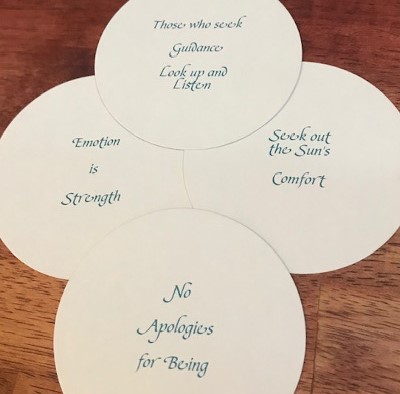 Those who seek
Guidance
Look up and
Listen
Emotion
is
Strength
Seek out
the Sun's
Comfort
No
Apologies
for Being